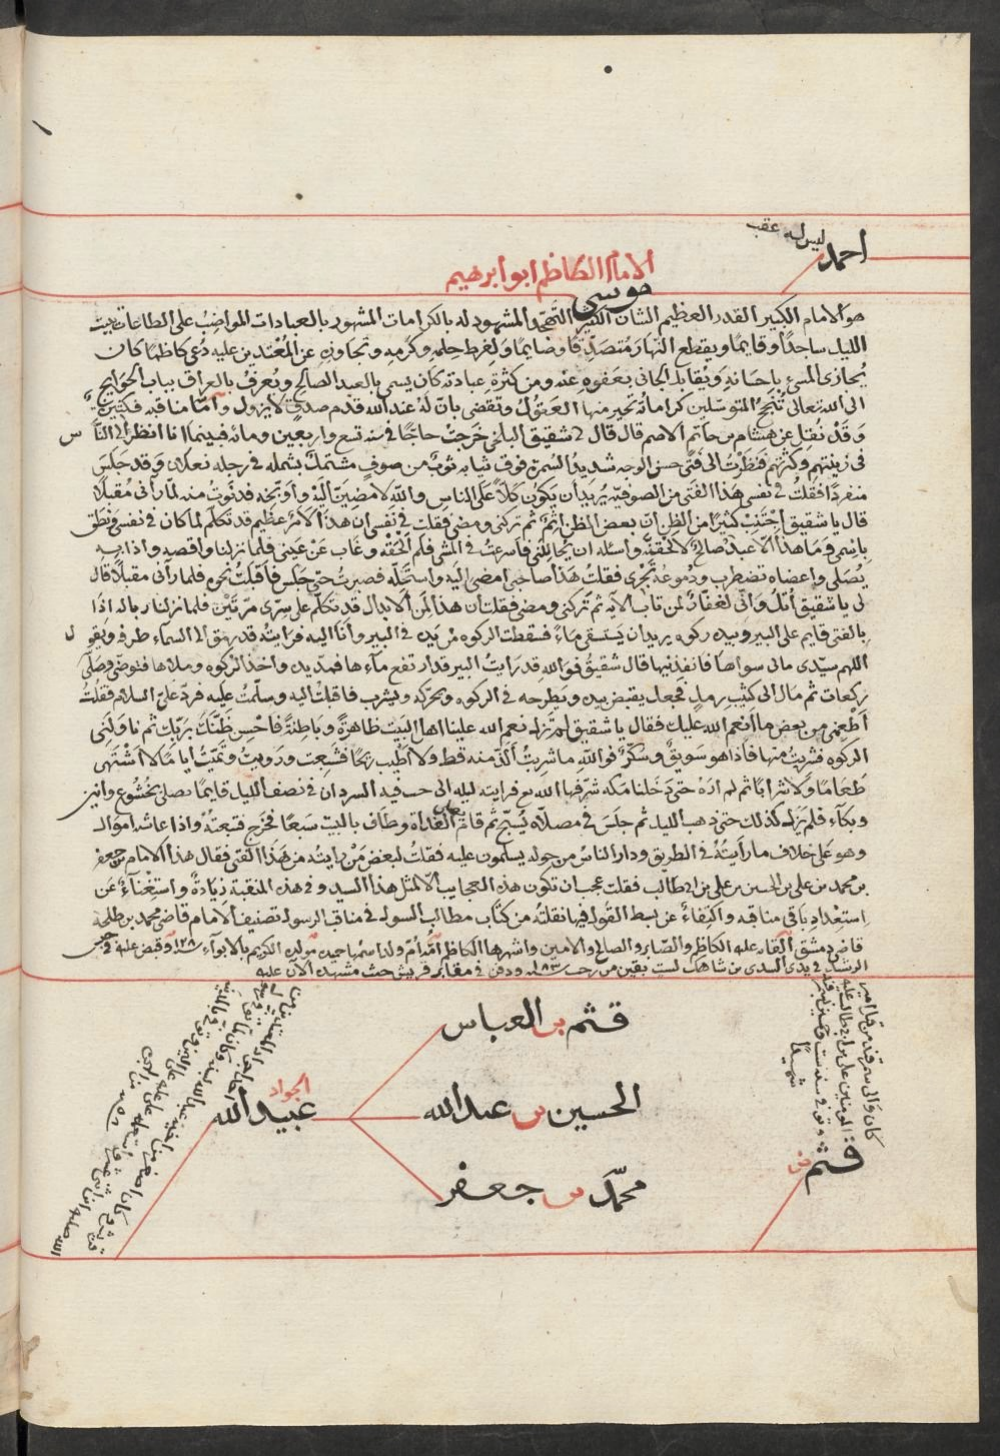 احمد
ليس له عقب
الامام الكاظم ابو ابرهيم
موسى
هو الامام الكبير القدر العظيم الشان الكثير التهجد المشهود له بالكرامات المشهور بالعبادات المواضب على الطاعات يبيت
الليل ساجدًا وقايمًا ويقطع النهار متصدقًا وصايمًا ولفرط حلمه وكرمه وتجاوزه عن المعتدين عليه دعى كاظمًا كان
يجازى المسئ باحسانه ويقابل الجانى بعفوه عنه ومن كثرة عبادته كان يسمى بالعبد الصالح ويعرف بالعراق بباب الحوايج
الى الله تعالى نجح المتوسلين كراماته تحير منها العقول وتقضى بان له عند الله قدم صدق لا يزول واما مناقبه فكثيرة
وقد نقل عن هشام بن حاتم الاصم قال قال لى شقيق البلخى خرجت حاجًا فى سنه تسع واربعين ومائه فبينما انا انظر الى الناس
فى زينتهم وكثرتهم فنظرت الى فتى حسن الوجه شديد السمرة فوق ثيابه ثوب من صوف مشتمل بشمله فى رجله نعلان وقد جلس
منفردًا فقلت فى نفسى هذا الفتى من الصوفيه يريد ان يكون كلًا على الناس والله لامضين اليه واوبخه فدنوت منه لما رأنى مقبلًا
قال يا شقيق اجتنب كثيرًا من الظن ان بعض الظن اثم ثم تركنى ومضى فقلت فى نفسى ان هذا الامر عظيم قد تكلم لما كان فى نفسى ونطق
باسمى وما هذا الا عبد صالح لالحقنه واسئله ان يحاللنى فاسرعت فى المشى فلم الحقه وغاب عن عينى فلما نزلنا واقصه واذا به
يصلى واعضاه تضطرب ودموعه تجرى فقلت هذا صاحبى امضى اليه واستحله فصبرت حتى جلس فاقبلت نحوه فلما رأنى مقبلًا قال
لى يا شقيق اتل وانى لغفار لمن تاب الآيه ثم تركنى ومضى فقلت ان هذا لمن الابدال قد تكلم على سرى مرتين فلما نزلنا رباله اذا
بالفتى قايم على البير وبيده ركوه يريد ان يستقى ماءً فسقطت الركوه من يده فى البير وانا اليه فرايته قد رمق الى السماء طرفه ويقول
اللهم سيدى مالى سواها فلا تفقدنيها قال شقيق فوالله قد رايت البير قد ارتفع ماءها فمد يده واخذ الركوه وملاها فتوضى وصلى
ركعات ثم مال الى كثيب رمل فجعل يقبض بيده ويطرحه فى الركوه ويحركه ويشرب فاقبلت اليه وسلمت عليه فرد علىّ السلام فقلت
اطعمنى من بعض ما انعم الله عليك فقال يا شقيق لم تزل نعم الله علينا اهل البيت ظاهرة وباطنة فاحسن ظنك بربك ثم ناولنى
الركوه فشربت منها فاذا هو سويق وسكر فوالله ما شربت الذ منه قط ولا اطيب ريحًا فشبعت ورويت وتميت اياما لا اشتهى
طعامًا ولا شرابًا ثم لم اره حتى دخلنا مكه شرفها الله تع فرايته ليله الى جنب قبه السردان فى نصف الليل قايمًا يصلى بخشوع وانين
وبكاء فلم يزل كذلك حتى ذهب الليل ثم جلس فى مصلاه يسبح ثم قام فصلى الغداة وطاف بالبيت سبعًا فخرج فتبعته واذا غاشه اموال
وهو على خلاف ما رايته فى الطريق ودار الناس من حوله يسلمون عليه فقلت لبعض من رايته من هذا الفتى فقال هذا الامام بن جعفر
بن محمد بن على بن الحسين بن على بن ابى طالب فقلت عجب ان تكون هذه العجايب الا لمثل هذا السيد وفى هذه المنقبة زيادة واستغناء عن
استعداد باقى مناقبه واكتفاء عن بسط القول فيها نقلته من كتاب مطالب السول فى مناقب الرسول تصنيف الامام قاضى محمد بن طلحة
قاضى دمشق القابه عليه الكاظم والصابر والصالح والامين واشهرها الكاظم امه ام ولد اسمها حميده مولده الكريم بالابواء سنه ١٢٨ وقبض عليه فى حبس
الرشيد فى يدى السدى بن شاهك لست بقين من رجب ١٨٣ له ودفن فى مقابر قريش حيث مشهده الان عليه
قثم بن العباس
الحسين بن عبد الله
محمد بن جعفر
الجواد
عبيد الله
قثم بن
كان والى سمرقند من قبل امير
المومنين على بن ابى طالب عليه
شهيدًا